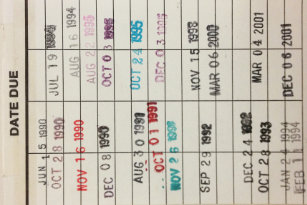 DATE DUE
JUN 15 1990
OCT 28 1990
NOV 16 1990
DEC 08 1990
AUG 30 1991
OCT 01 1991
NOV 26 1991
SEP 29 1992
DEC 24 1992
OCT 28 1993
JAN 24 1994
FEB 1994
JUL 19
AUG 16 1994
AUG 22 1995
OCT 0 1995
OCT 24 1995
DEC 03 1995
NOV 15 1998
MAR 06 2000
MAR 04 2001
DEC 06 2001